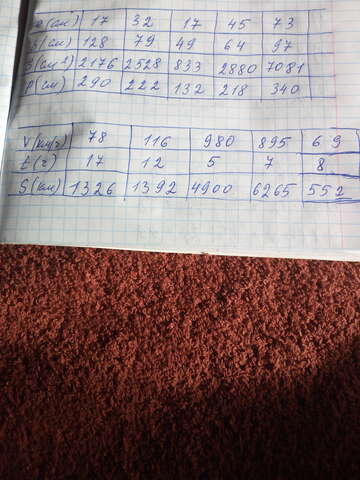 a(см) 17 32 17 45 73
b(см) 128 79 49 64 97
S(см²) 2176 2528 833 2880 7081
P(см) 290 222 132 218 340
V(км/ч) 78 116 980 895 69
t(ч) 17 12 5 7 8
S(км) 1326 1392 4900 6265 552